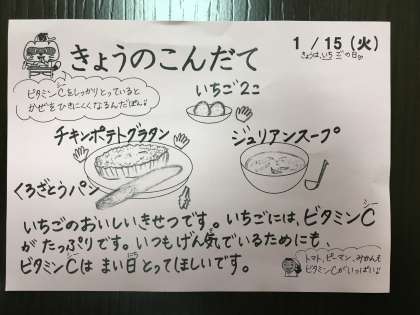 きょうのこんだて
1/15(火)
きょうは、いちごの日。
ビタミンCをしっかりとっていると
かぜをひきにくくなるんだぽん♪
いちご2こ
チキンポテトグラタン
ジュリアンスープ
くろざとうパン
いちごのおいしいきせつです。いちごには、ビタミンC
シー
がたっぷりです。いつもげん気でいるためにも、
ビタミンCは まい日とってほしいです。
シー
にち
トマト、ピーマン、みかんも
ビタミンCがいっぱい♪